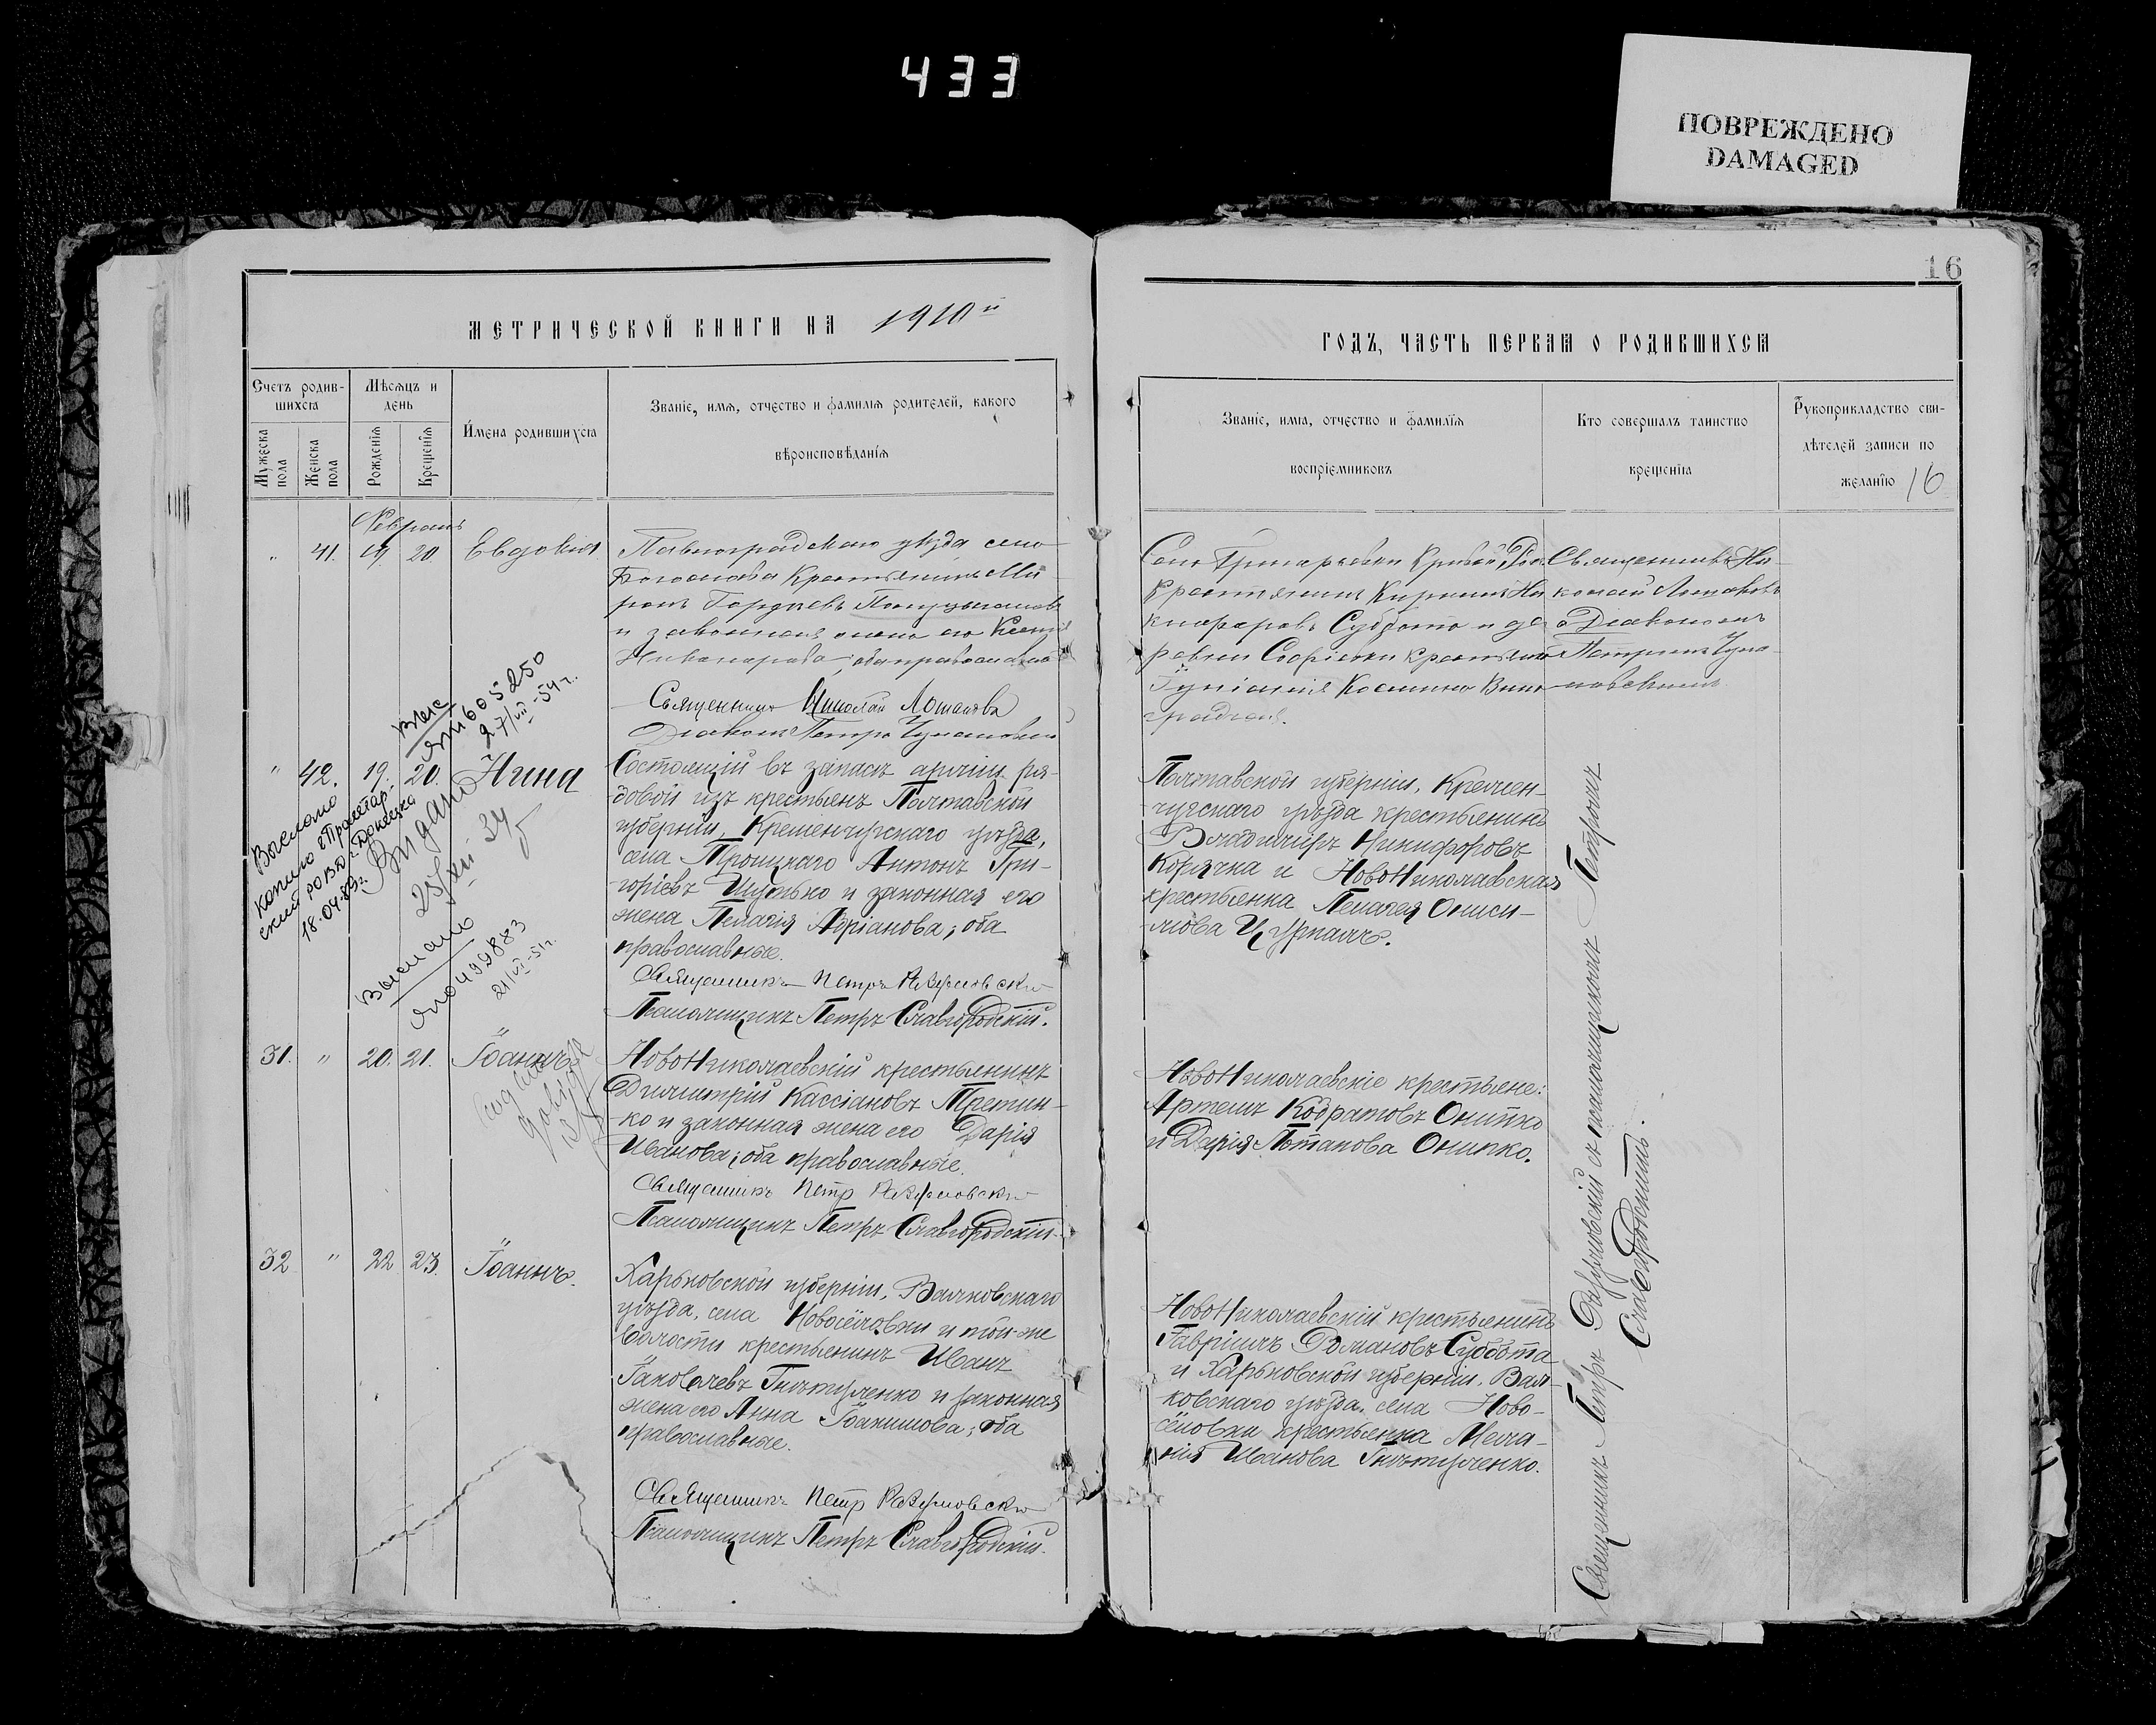 433
ПОВРЕЖДЕНО
DAMAGED
16
МЕТРИЧЕСКОЙ КНИГИ НА 1910й
ГОДЪ, ЧАСТЬ ПЕРВАЯ О РОДИВШИХСЯ
Счетъ родив-
шихся
Мужеска пола
Женска пола
Мѣсяцъ и
день
Рожденія
Крещенія
Имена родившихся
Званіе, имя, отчество и фамилія родителей, какого
вѣроисповѣданія
Званіе, имя, отчество и фамилія
воспріемниковъ
Кто совершалъ таинство
крещенія
Рукоприкладство сви-
дѣтелей записи по
желанію 16
Февраль
" 41. 19. 20. Евдокия
Павлоградскаго уѣзда села
Богослова Крестьянинъ Ми-
ронъ Гордѣевъ
и законная жена его Ксенія
Никанорова; оба православные
Священникъ Николай Лошаковъ
Діаконъ Петръ
Крестьянинъ Кириллъ Ни-
кифоровъ Суббота и де-
ревни Софіевки крестьянка
Іуліанія Космина Вино-
градная.
Священникъ Ни-
колай Лошаковъ
съ Діакономъ
Петромъ
" 42. 19. 20. Нина
Состоящій въ запасѣ арміи ря-
довой изъ крестьянъ Полтавской
губерніи, Кременчугскаго уѣзда,
села Троицкаго Антонъ Гри-
горіевъ Шутько и законная его
жена Пелагія Адріанова; оба
православные.
Священникъ Петръ Разумовскій
Псаломщикъ Петръ Славгородскій.
Полтавской губерніи, Кремен-
чугскаго уѣзда крестьянинъ
Владиміръ Никифоровъ
Корячка и НовоНиколаевская
крестьянка Пелагея Ониси-
мова Цуркалъ.
Выс
ЯЮ 605250
27/VII-54г.
Выслано
копию г Пролетар-
ский РОВД г. Донецка
18.04.89г.
Видано
23/XII 34
Выслано
ЯЮ 0499883
21/VI-51г.
31. " 20. 21. Іоаннъ
НовоНиколаевскій крестьянинъ
Димитрій Кассіановъ Третин-
ко и законная жена его Дарія
Иванова; оба православные.
Священникъ Петр Разумовскій
Псаломщикъ Петръ Славгородскій.
НовоНиколаевскіе крестьяне:
Артемъ Кодратовъ Онипко
и Дарія Потапова Онипко.
32 " 22 23. Іоаннъ.
Харьковской губерніи, Валковскаго
уѣзда, села Новосёловки и той-же
волости крестьянинъ Иванъ
Іаковлевъ Гнѣтуленко и законная
жена его Анна Іоакимова; оба
православные.
Священникъ Петр Разумовскій
Псаломщикъ Петръ Славгородскій.
НовоНиколаевскій крестьянинъ
Гавріилъ Романовъ Суббота
и Харьковской губерніи, Вал-
ковскаго уѣзда, села Ново-
сёловки крестьянка Мела-
нія Иванова Гнѣтуленко.
Священникъ Петръ Разумовскій съ псаломщикомъ Петромъ
Славгородскимъ.